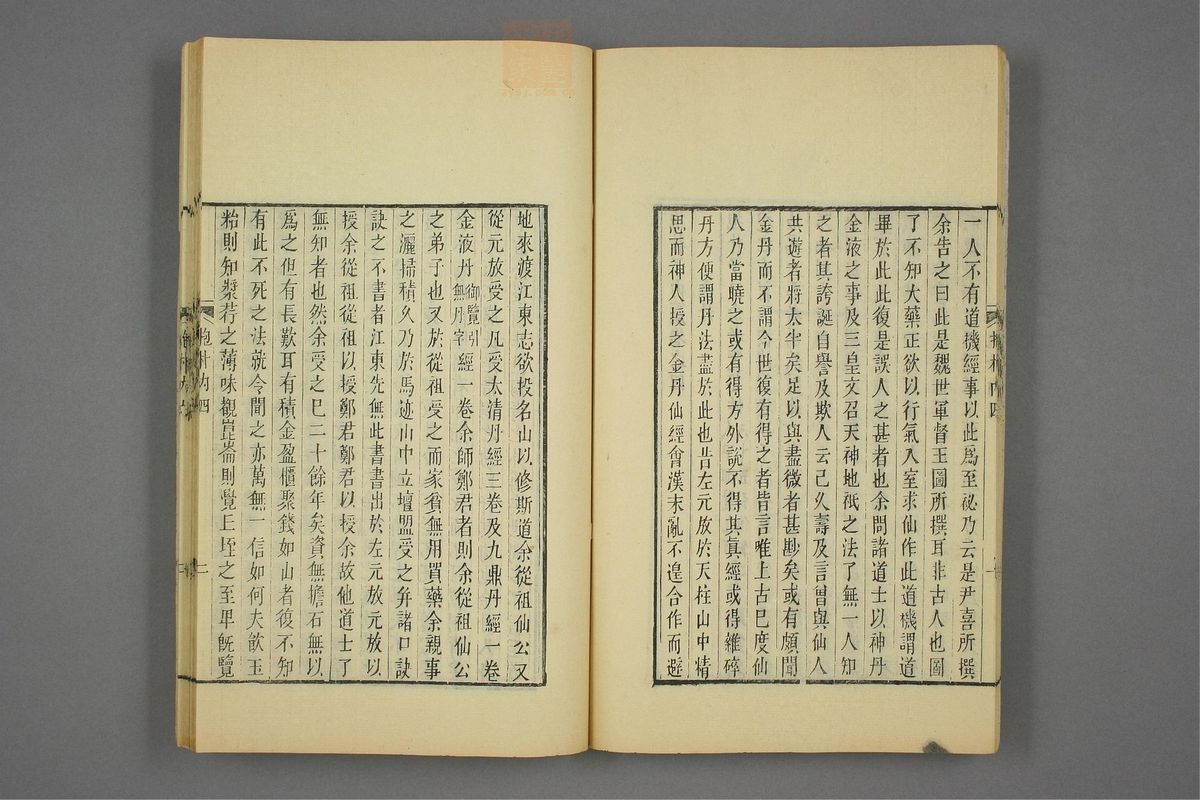 一人不有道機經事以此爲至祕乃云是尹喜所撰
余告之曰此是魏世軍督王圖所撰耳非古人也圖
了不知大藥正欲以行氣入室求仙作此道機謂道
畢於此此復是誤人之甚者也余問諸道士以神丹
金液之事及三皇文召天神地祇之法了無一人知
之者其誇誕自譽及欺人云己久壽及言曾與仙人
共遊者將太半矣足以與盡微者甚尟矣或有頗聞
金丹而不謂今世復有得之者皆言唯上古巳度仙
人乃當曉之或有得方外說不得其眞經或得雜碎
丹方便謂丹法盡於此也昔左元放於天柱山中精
思而神人授之金丹仙經會漢末亂不遑合作而避
地來渡江東志欲投名山以修斯道余從祖仙公又
從元放受之凡受太清丹經三卷及九鼎丹經一卷
金液丹御覽引無丹字經一卷余師鄭君者則余從祖仙公
之弟子也又於從祖受之而家貧無用買藥余親事
之灑掃積久乃於馬迹山中立壇盟受之幷諸口訣
訣之不書者江東先無此書書出於左元放元放以
授余從祖從祖以授鄭君鄭君以授余故他道士了
無知者也然余受之巳二十餘年矣資無擔石無以
爲之但有長歎耳有積金盈櫃聚錢如山者復不知
有此不死之法就令聞之亦萬無一信如何夫飮玉
粭則知漿荇之薄味觀崑崙則覺丘垤之至卑旣覽
抱朴內四
二